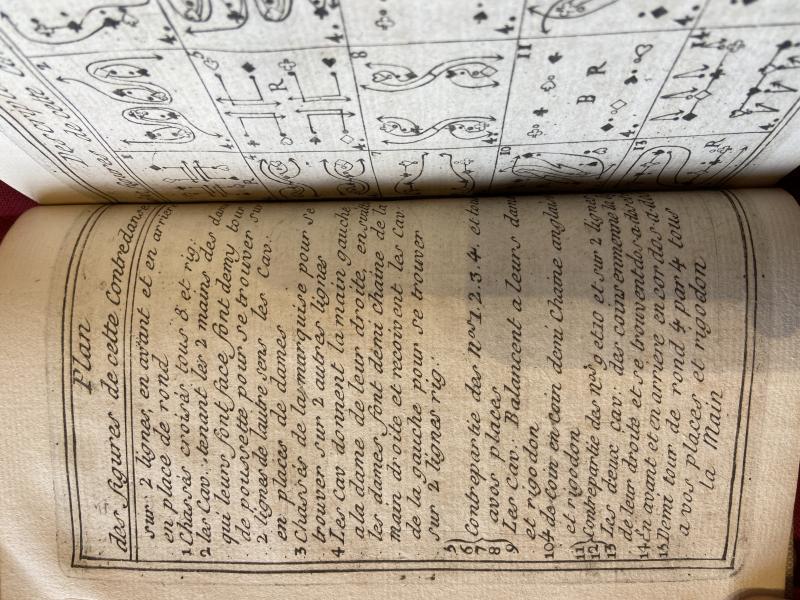 Plan
des figures de cette Contredanse
sur 2 lignes, en avant et en arriere
en place de rond
1 Chassés croisés tous 8 et rig:
2 les Cav: tenant les 2 mains des dam
qui leurs font face font demy tour
de poussette pour se trouver sur
2 lignes de lautre sens les Cav:
en places de dames
3 Chassés de la marquise pour se
trouver sur 2 autres lignes
4 Les Cav donnent la main gauche
a la dame de leur droite, ensuite
les dames font demi chaine de la
main droite et recoivent les Cav:
de la gauche pour se trouver
sur 2 lignes rig:
5
6
7
8
Contrepartie des nos 1. 2. 3. 4. et
avos places
9 Les Cav: Balancent a leurs dam
et rigodon
10 4 de coin en coin demi Chaine anglai
et rigodon
11
12
Contrepartie des nos 9 et 10 et sur 2 lignes
13 Les deux cav: des coins emmenne
de leur droite et se trouvent dos a dos
14 En avant et en arriere en cor dos a dos
15 Demi tour de rond 4 par 4 tous
a vos places et rigodon
la Main
1
2
3
4
4.
R
4.
4.
7
8
4.
10
11
B R
4.
13
14
R
4.